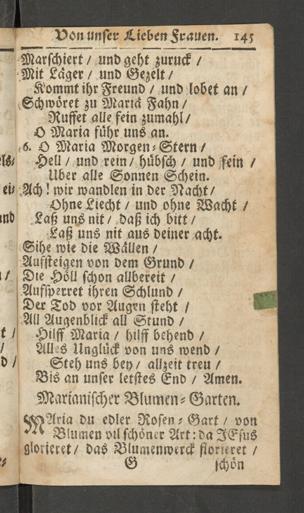 Von unser Lieben Frauen. 145
Marschiert / und geht zuruck /
Mit Läger / und Gezelt /
Kommt ihr Freund / und lobet an /
Schwöret zu Mariä Fahn /
Ruffet alle sein zumahl /
O Maria führ uns an.
6. O Maria Morgen-Stern /
Hell / und rein / hübsch / und fein /
Uber alle Sonnen Schein.
Ach! wir wandlen in der Nacht /
Ohne Liecht / und ohne Wacht /
Laß uns nit / daß ich bitt /
Laß uns nit aus deiner acht.
Sihe wie die Wällen /
Aufsteigen von dem Grund /
Die Höll schon allbereit /
Aufsperret ihren Schlund /
Der Tod vor Augen steht /
All Augenblick all Stund /
Hilff Maria / hilff behend /
Alles Unglück von uns wend /
Steh uns bey / allzeit treu /
Bis an unser letstes End / Amen.
Marianischer Blumen-Garten.
MAria du edler Rosen-Gart / von
Blumen vil schöner Art: da JEsus
glorieret / das Blumenwerck florieret /
G schön